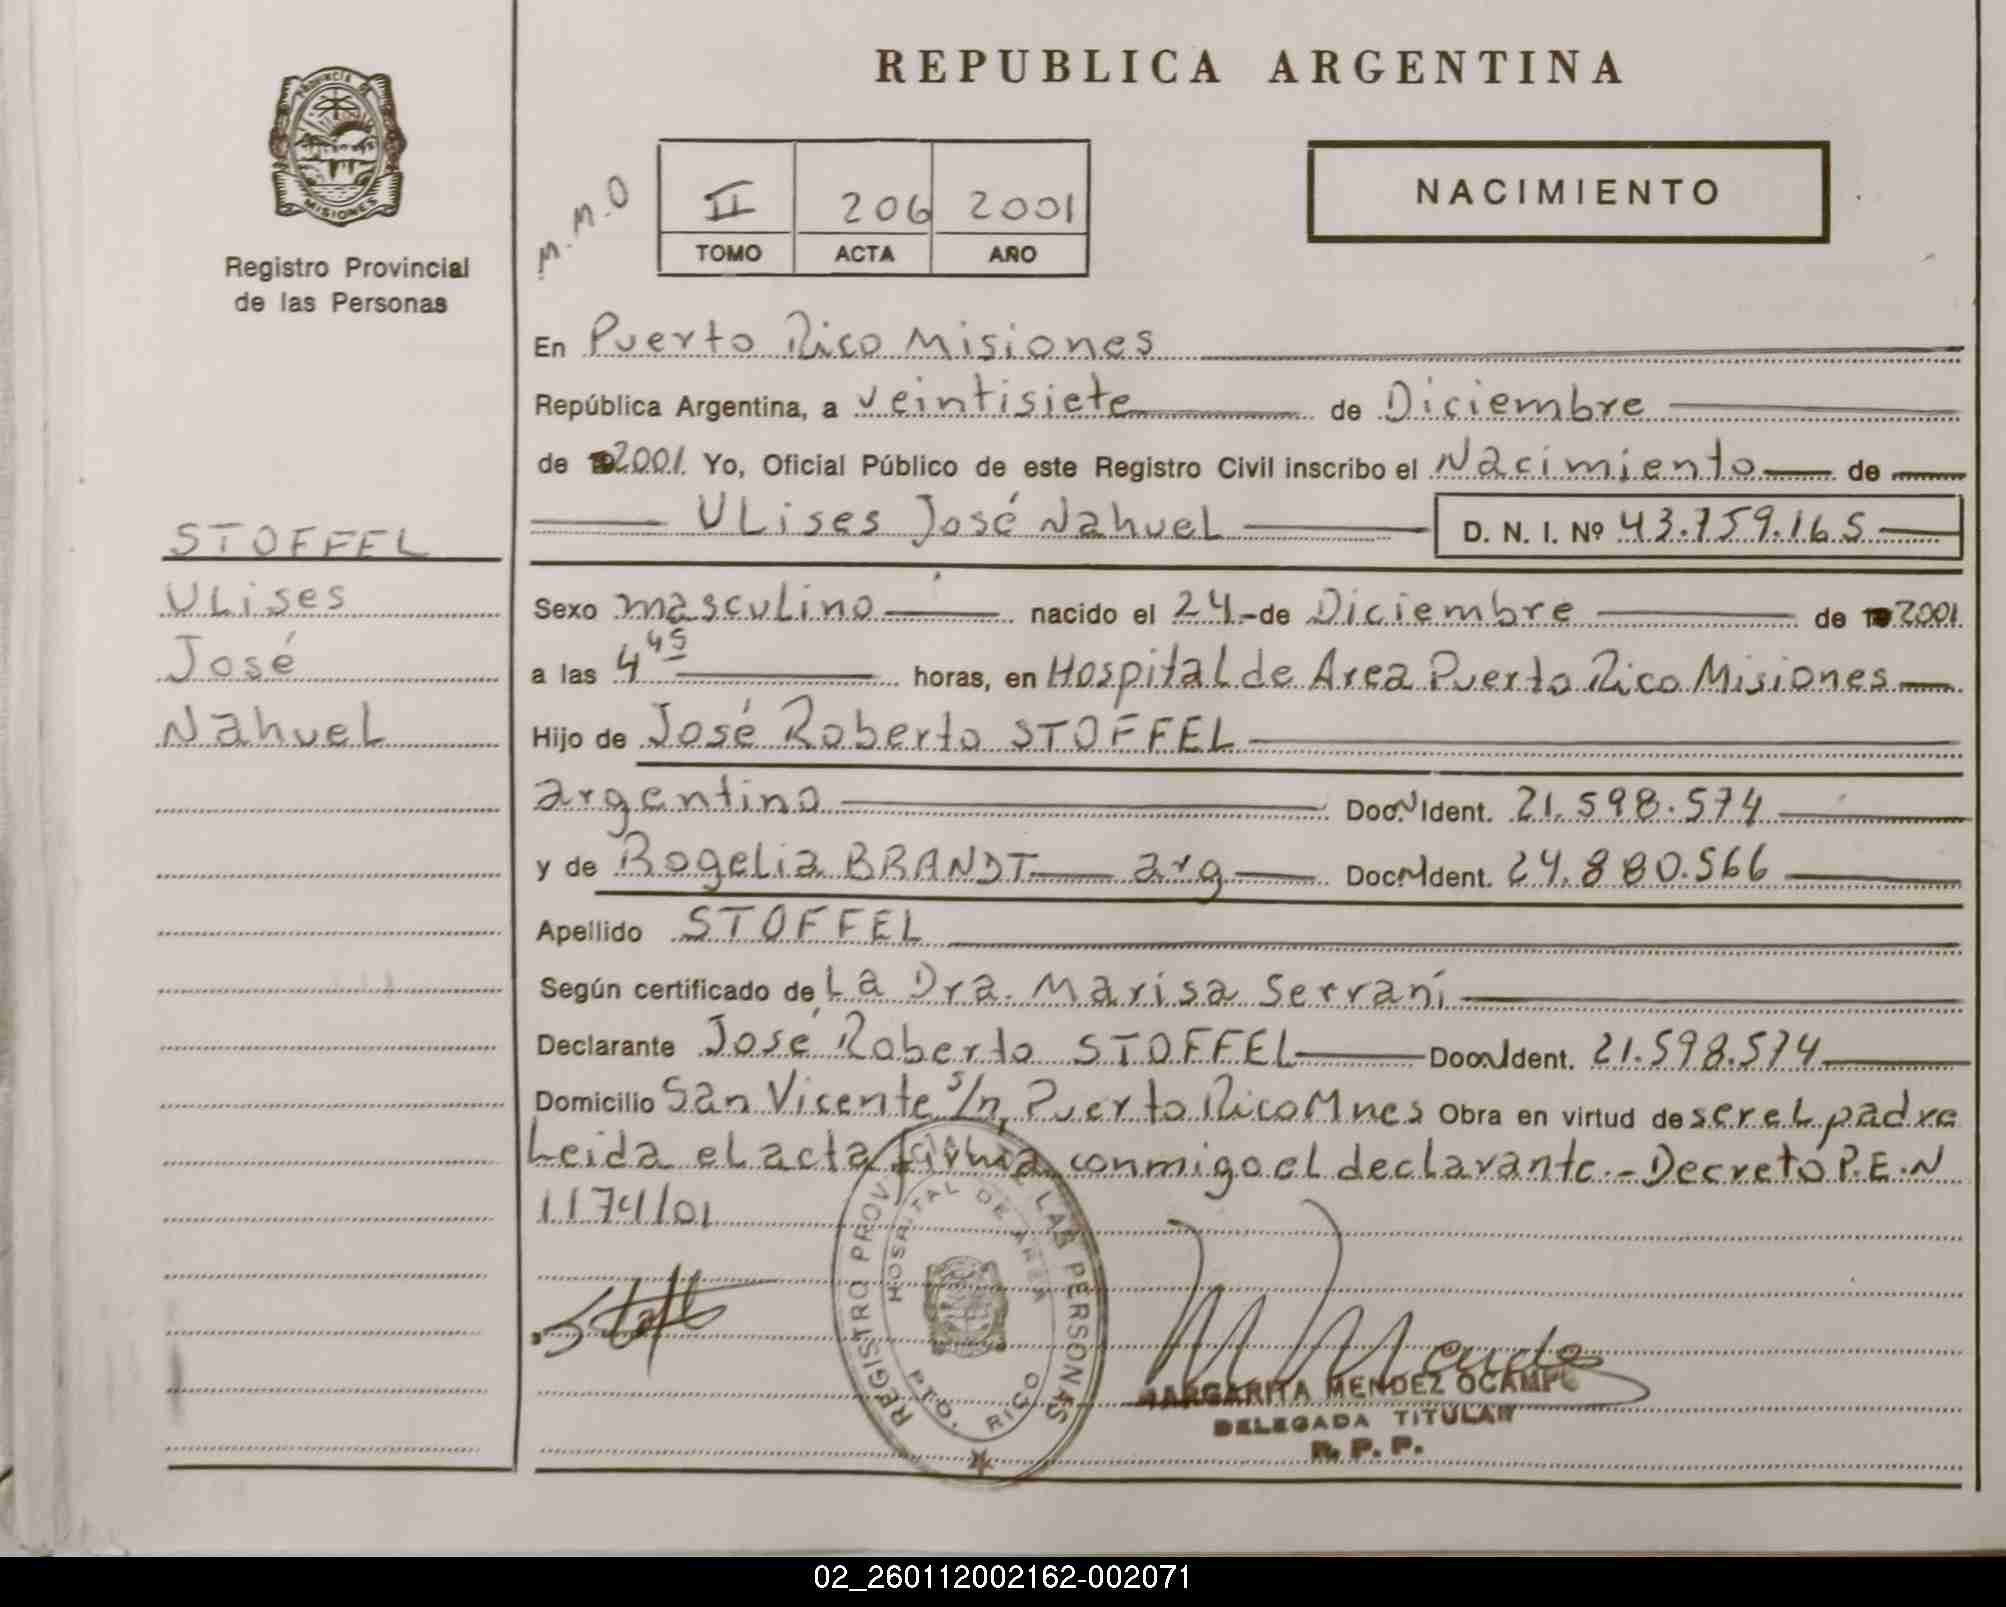 PROVINCIA DE
MISIONES
Registro Provincial
de las Personas
STOFFEL
Ulises
José
Nahuel
REPUBLICA ARGENTINA
M.M.O
II 206 2001
TOMO ACTA AÑO
NACIMIENTO
En Puerto Rico Misiones
República Argentina, a veintisiete de Diciembre
de 2001. Yo, Oficial Público de este Registro Civil inscribo el Nacimiento de
Ulises José Nahuel D. N. I. Nº 43.759.165
Sexo masculino nacido el 24 de Diciembre de 2001
a las 4 45 horas, en Hospital de Area Puerto Rico Misiones
Hijo de José Roberto STOFFEL
argentino Doc. Ident. 21.598.574
y de Rogelia BRANDT arg Doc. Ident. 24.880.566
Apellido STOFFEL
Según certificado de La Dra. Marisa Serrani
Declarante José Roberto STOFFEL Doc. Ident. 21.598.574
Domicilio San Vicente s/n, Puerto Rico Mnes Obra en virtud de ser el padre
Leida el acta firma conmigo el declarante.- Decreto P.E.N
1174/01
REGISTRO PROV. DE LAS PERSONAS
HOSPITAL DE AREA
PTO. RICO
MARGARITA MENDEZ OCAMPO
DELEGADA TITULAR
R. P. P.
02_260112002162-002071